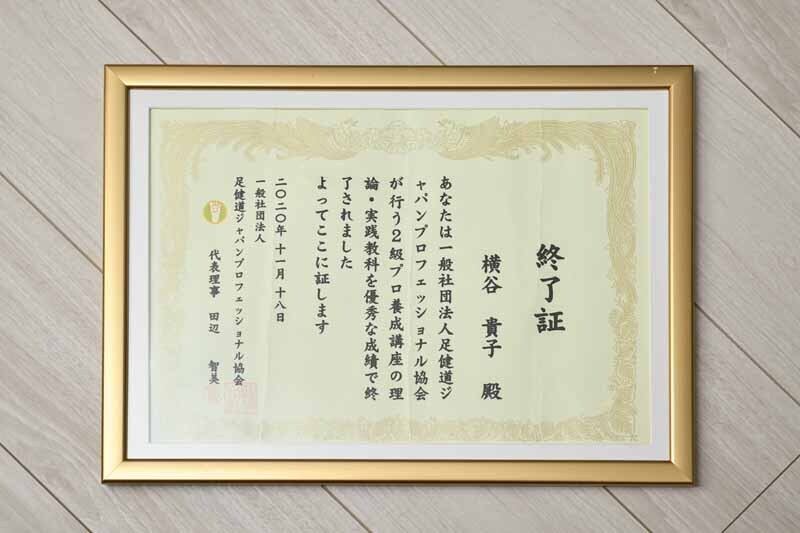 終了証
横谷 貴子 殿
あなたは一般社団法人足健道ジ
ャパンプロフェッショナル協会
が行う2級プロ養成講座の理
論・実践教科を優秀な成績で終
了されました
よってここに証します
二〇二〇年 十一月 十八日
一般社団法人
足健道ジャパンプロフェッショナル協会
代表理事 田辺 智美